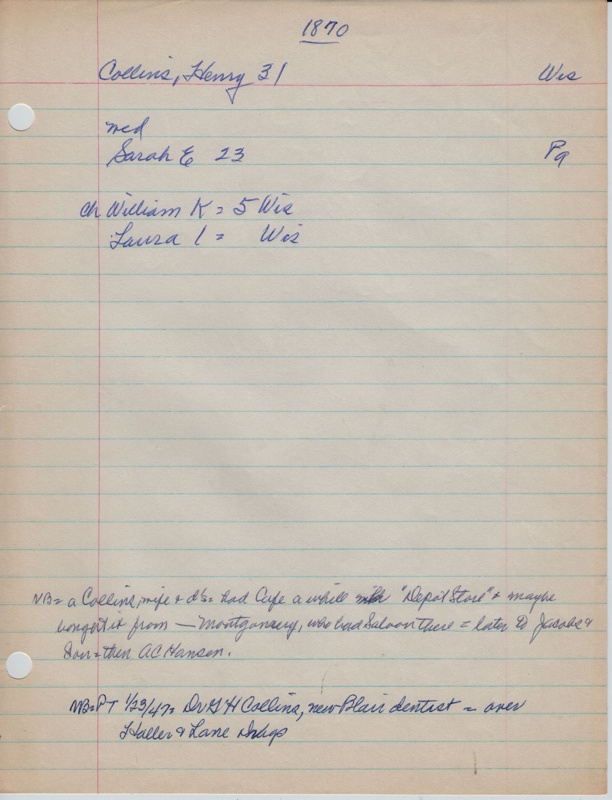 1870
Collins, Henry 31 Wis
med
Sarah E 23 Pa
ch William K = 5 Wis
Laura 1 = Wis
NB = a Collins, wife + = had Cafe a while "Depot Store" + maybe
bought it from — Montgomery, who had Saloon there = later to Jacobs +
Son = then A C Hansen.
NB = PT 1/23/47 = Dr G H Collins, new Blair dentist = over
Haller & Lane Drugs